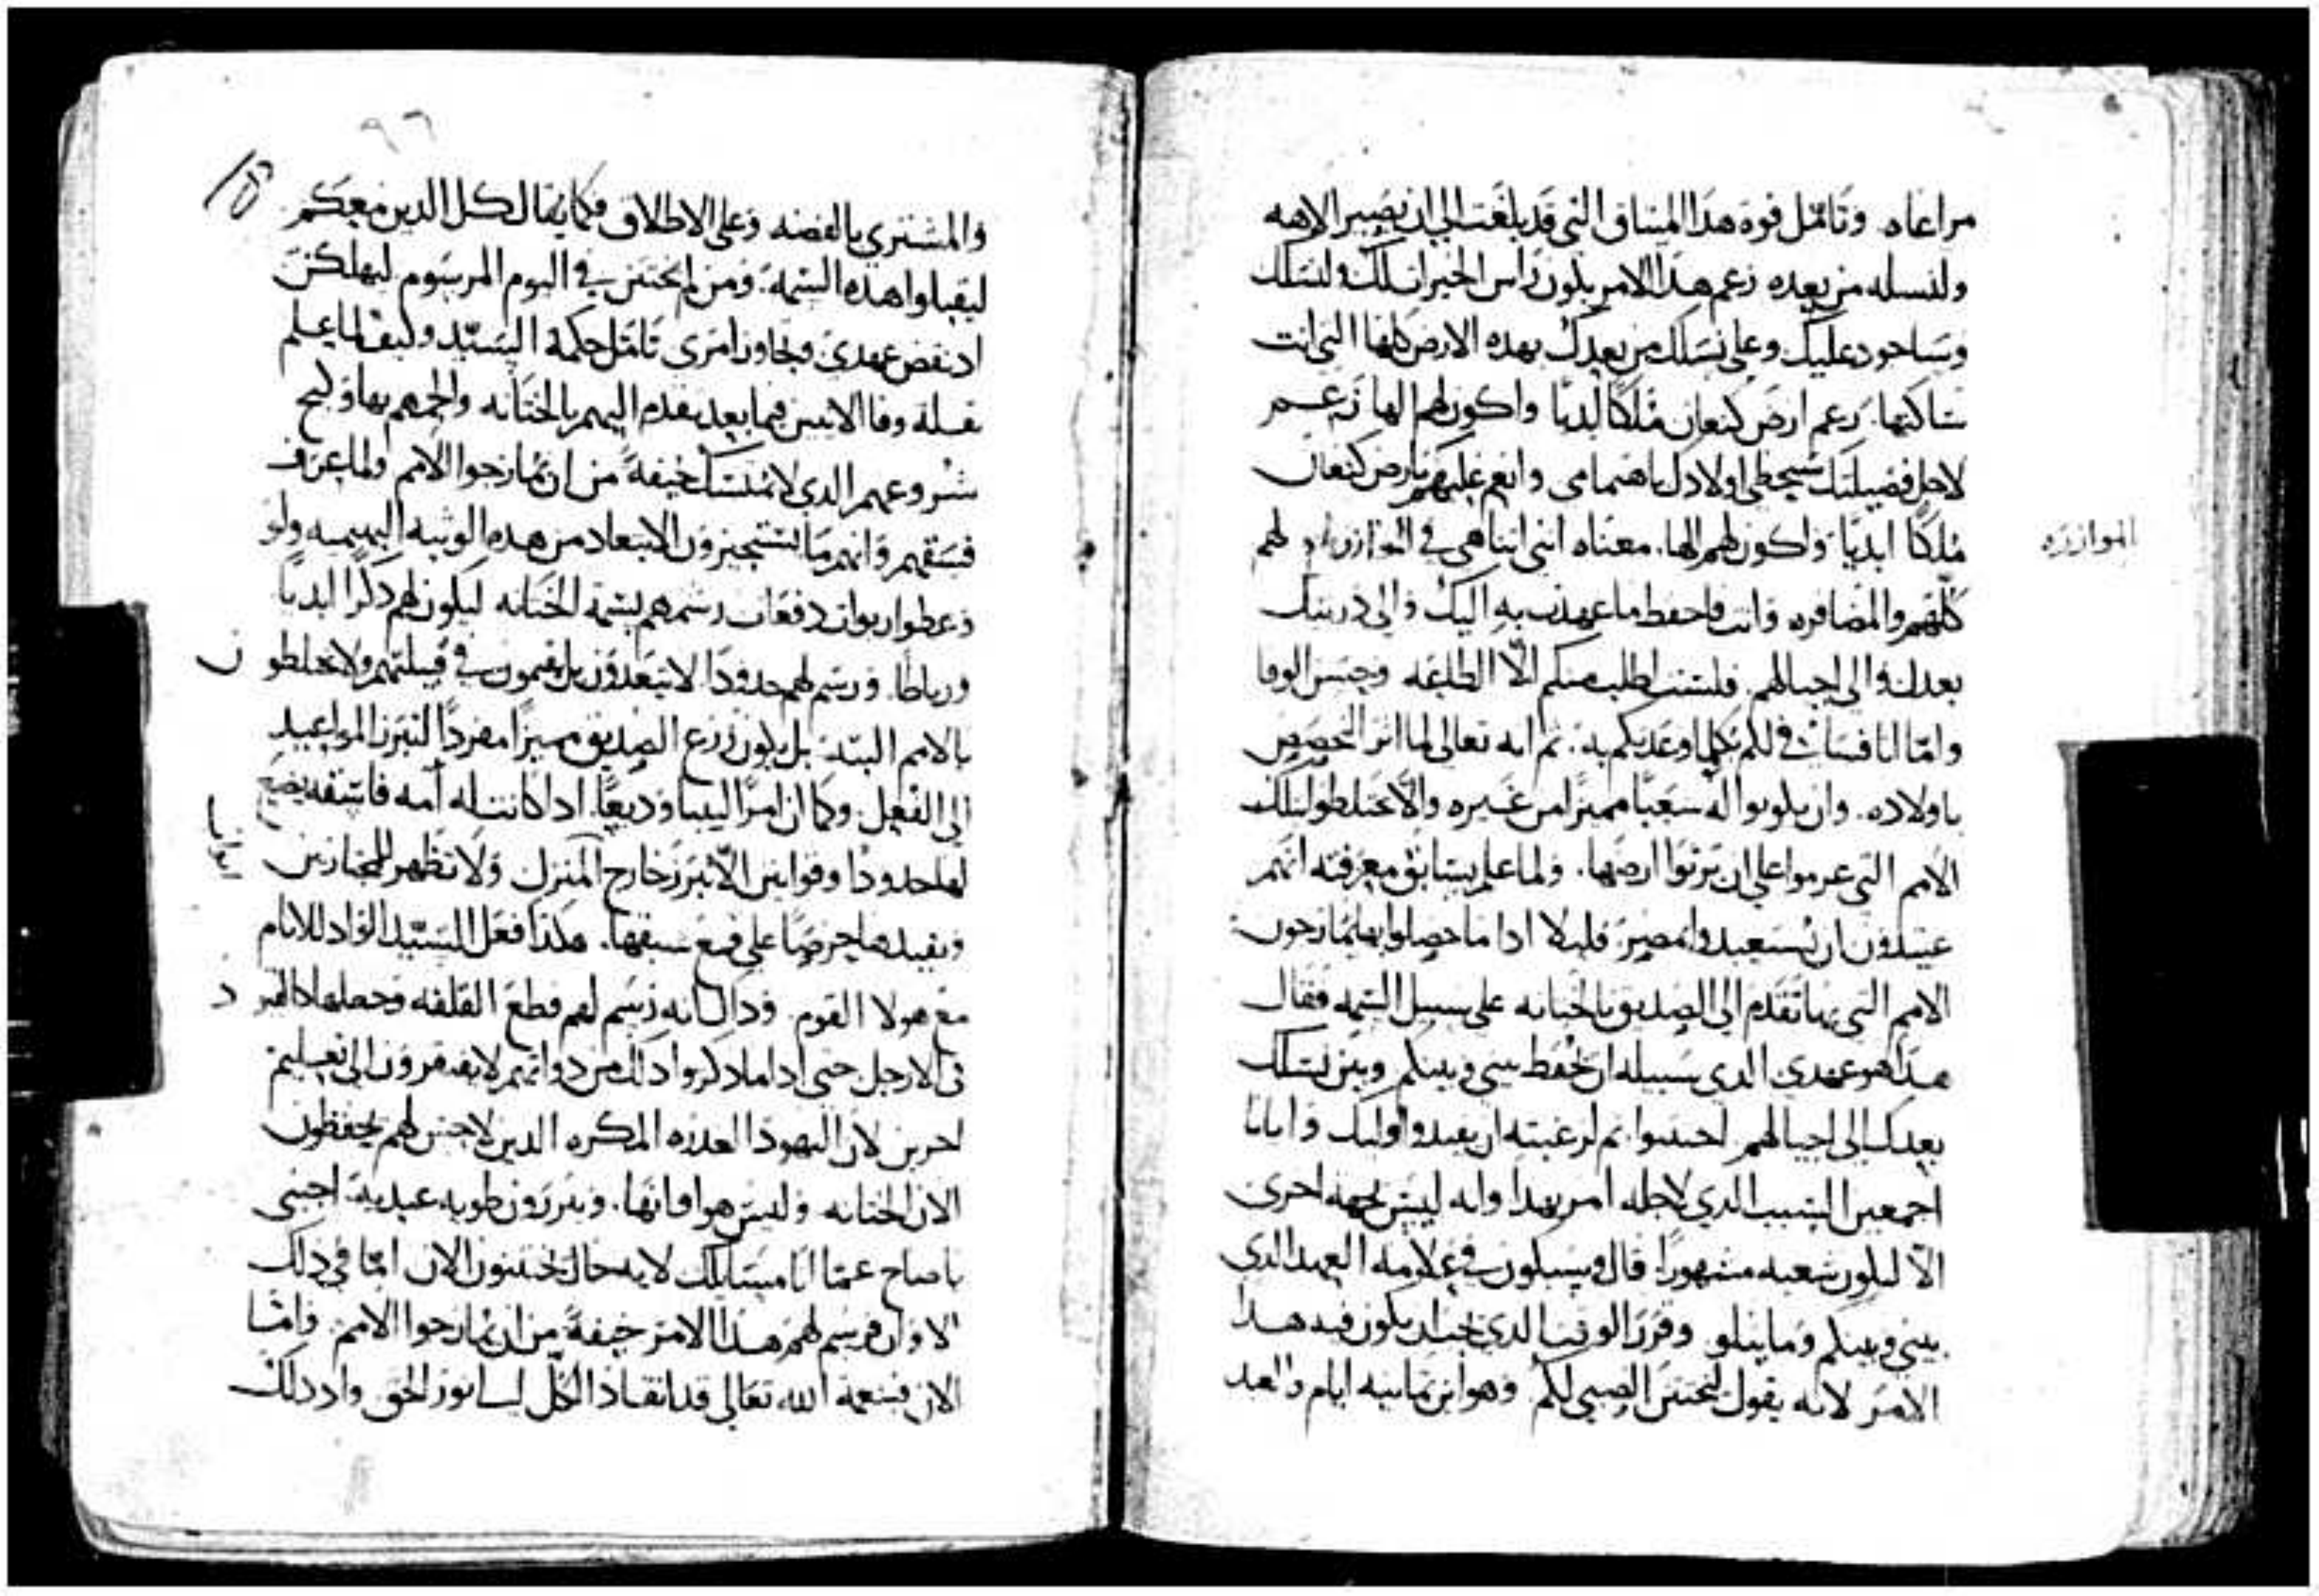 مراعاه وتامل قوة هدا الميتاق التي قد بلغت الي ان يصير الاهه
ولنسله من بعده زعم هدا الامر يكون راس الخيرات لك ولنسلك
وساجود عليك وعلي نسلك من بعدك بهده الارض كلها التي انت
ساكنها زعم ارض كنعان ملكا ابديا واكون لهم الها زعم
لاجل فضيلتك سيحظي اولادك باهتمامي وانعم عليهم بارض كنعان
ملكا ابديا واكون لهم الها. معناه انني اتناهي في الموازره لهم
الموازره
كلهم والمضافره وانت فاحفظ ما عهدت به اليك والي دريتك
بعدك والي اجيالهم فلست اطلب منكم الا الطاعه وحسن الوفا
واما انا فساتي لكم بكلما وعدتكم به. تم انه تعالي لما اتر التخصص
باولاده. وان يكونوا له شعبا مميزا من غيره والا يختلطوا بتلك
الامم التي عزموا علي ان يرتوا ارضها. ولما علم بسابق معرفته انهم
عتيدون ان يستعبدوا بمصر قليلا ادا ما حصلوا بها يمازجون
الامم التي بها تقدم الي الصديق بالختانه علي سبيل السمه فقال
هدا هو عهدي الدي سبيله ان يحفظ بيني وبينكم وبين نسلك
بعدك الي اجيالهم اختتنوا. تم لرغبته ان يفيد اوليك وايانا
اجمعين السبب الدي لاجله امر بهدا وانه ليس لجهه اخري
الا ليكون شعبه مشهورا قال وسيكون في علامه العهد الدي
بيني وبينكم وما يتلو وقرر الوقت الدي يجب ان يكون فيه هدا
الامر لانه يقول ليختتن الصبي لكم وهو ابن تمانيه ايام والعبد
٩٦
والمشتري بالفضه وعلي الاطلاق فكما يقال لكل الدين معكم
ليقبلوا هده السمه. ومن لم يختتن في اليوم المرسوم ليهلكن
اد نقض عهدي وتجاوز امري تامل حكمة السيد وكيف لما علم
بقلة وفا الاتين فيما بعد يقدم اليهم بالختانه والجمهم بها وكبح
شروعهم الدي لا يمتسك خيفة من ان يمازجوا الامم ولما عرف
فسقهم وانهم ما يستجيزون الابتعاد من هده الوتبه البهيميه ولو
وعظوا ربوات دفعات رسمهم بسمة الختانه ليكون لهم دكرا ابديا
ورباطا. ورسم لهم حدودا لا يتعدون بل يقيمون في قبيلتهم ولا يختلطون
بالامم البته بل يكون زرع الصديق مميزا مفردا لتبرز المواعيد
الي الفعل. وكما ان امرا لبيبا وديعا. ادا كانت له امه فاسقه يضع
لها حدودا وقوانين الا تبرز خارج المنزل ولا تظهر للمجتازين
ويقيدها حرصا علي قمع سبقها. هكدا فعل السيد الواد للانام
مع هولا القوم. وداك انه رسم لهم قطع القلفه وجعلها كالقيود
في الارجل حتي ادا ما دكروا داك من دواتهم لا يفتقرون الي تعليم
اخرين لان اليهود العدره المكره الدين لا حس لهم يحفظون
الان الختانه وليس هو اوانها. ويبررون طويه عبديه اجبني
يا صاح عما انا مسايلك لايه حال يختتنون الان اما في دلك
الاوان فرسم لهم هدا الامر خيفة من ان يمازجوا الامم. واما
الان فبنعمة الله تعالي قد انقاد الكل الي نور الحق واد دلك